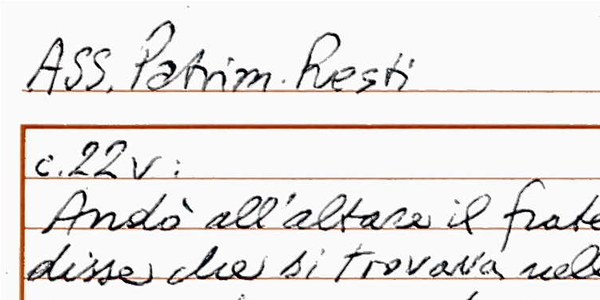 ASS. Patrim. Resti
c. 22v:
Andò all'altare il frate
disse che si trovava nel